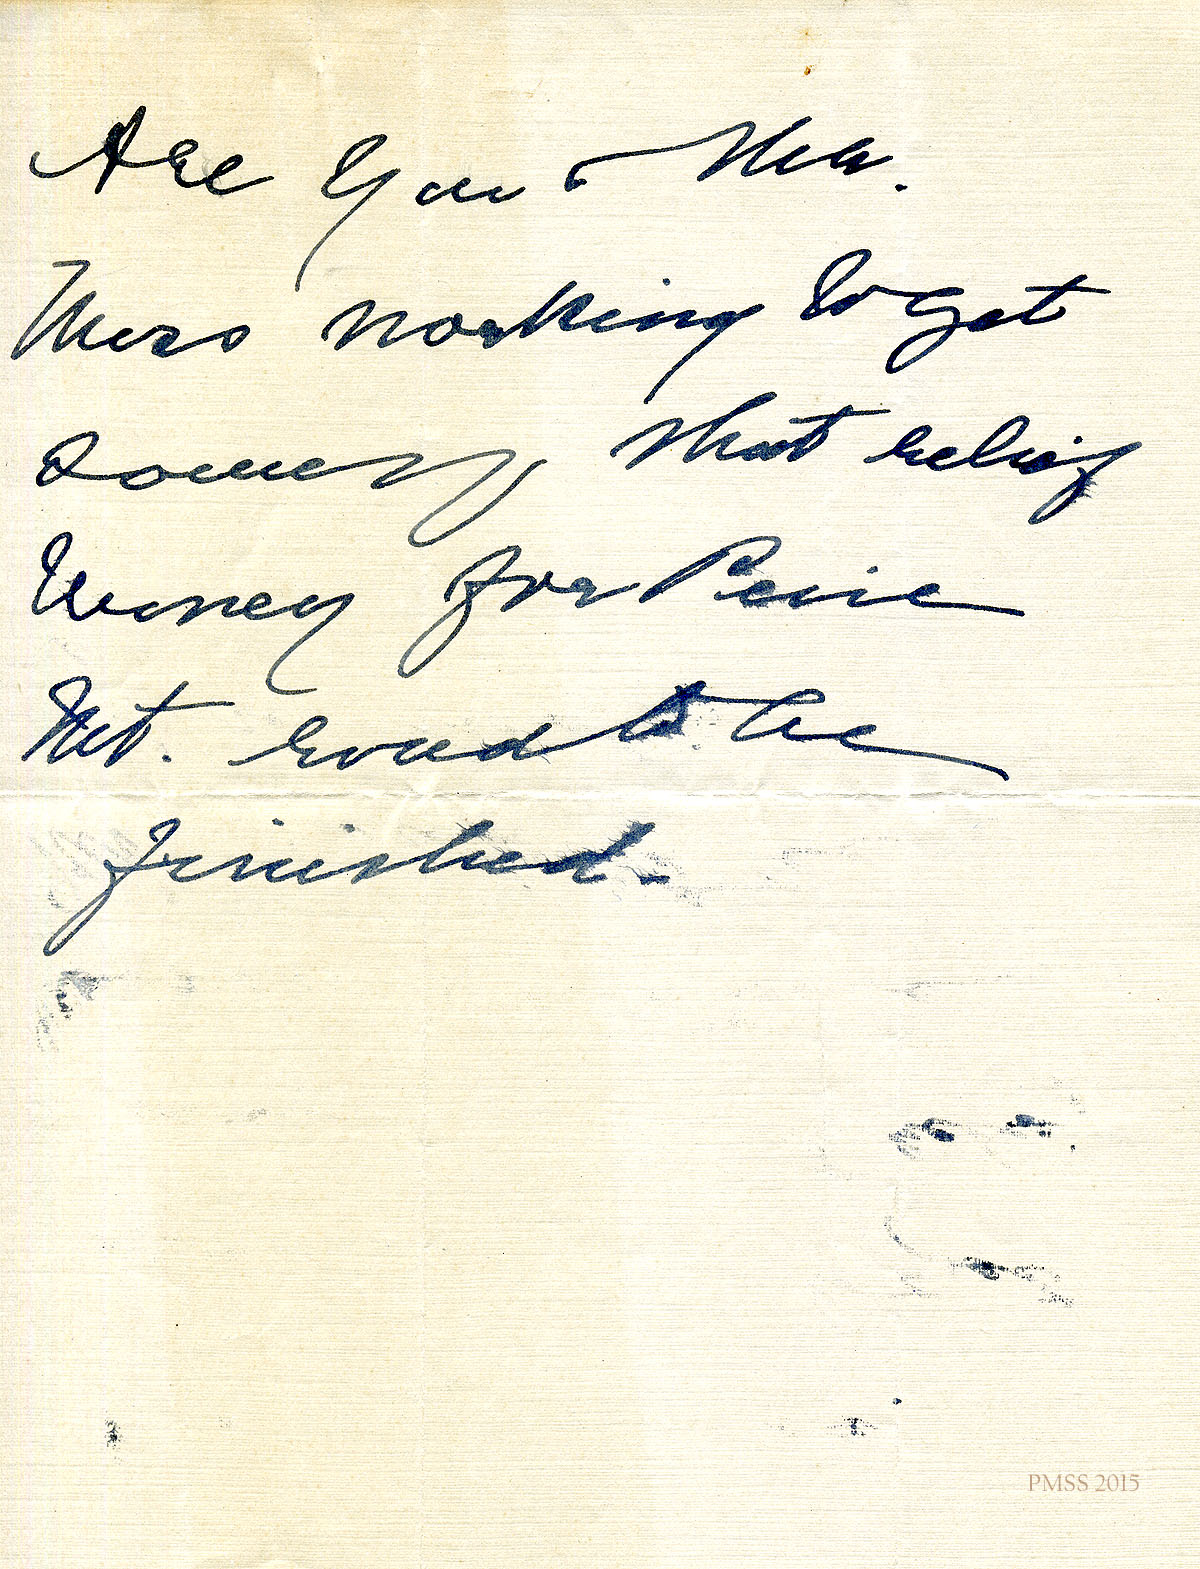 Are You & Mr.
working to get
some of that relief
money for Pine
Mt. road to be
finished -
PMSS 2015